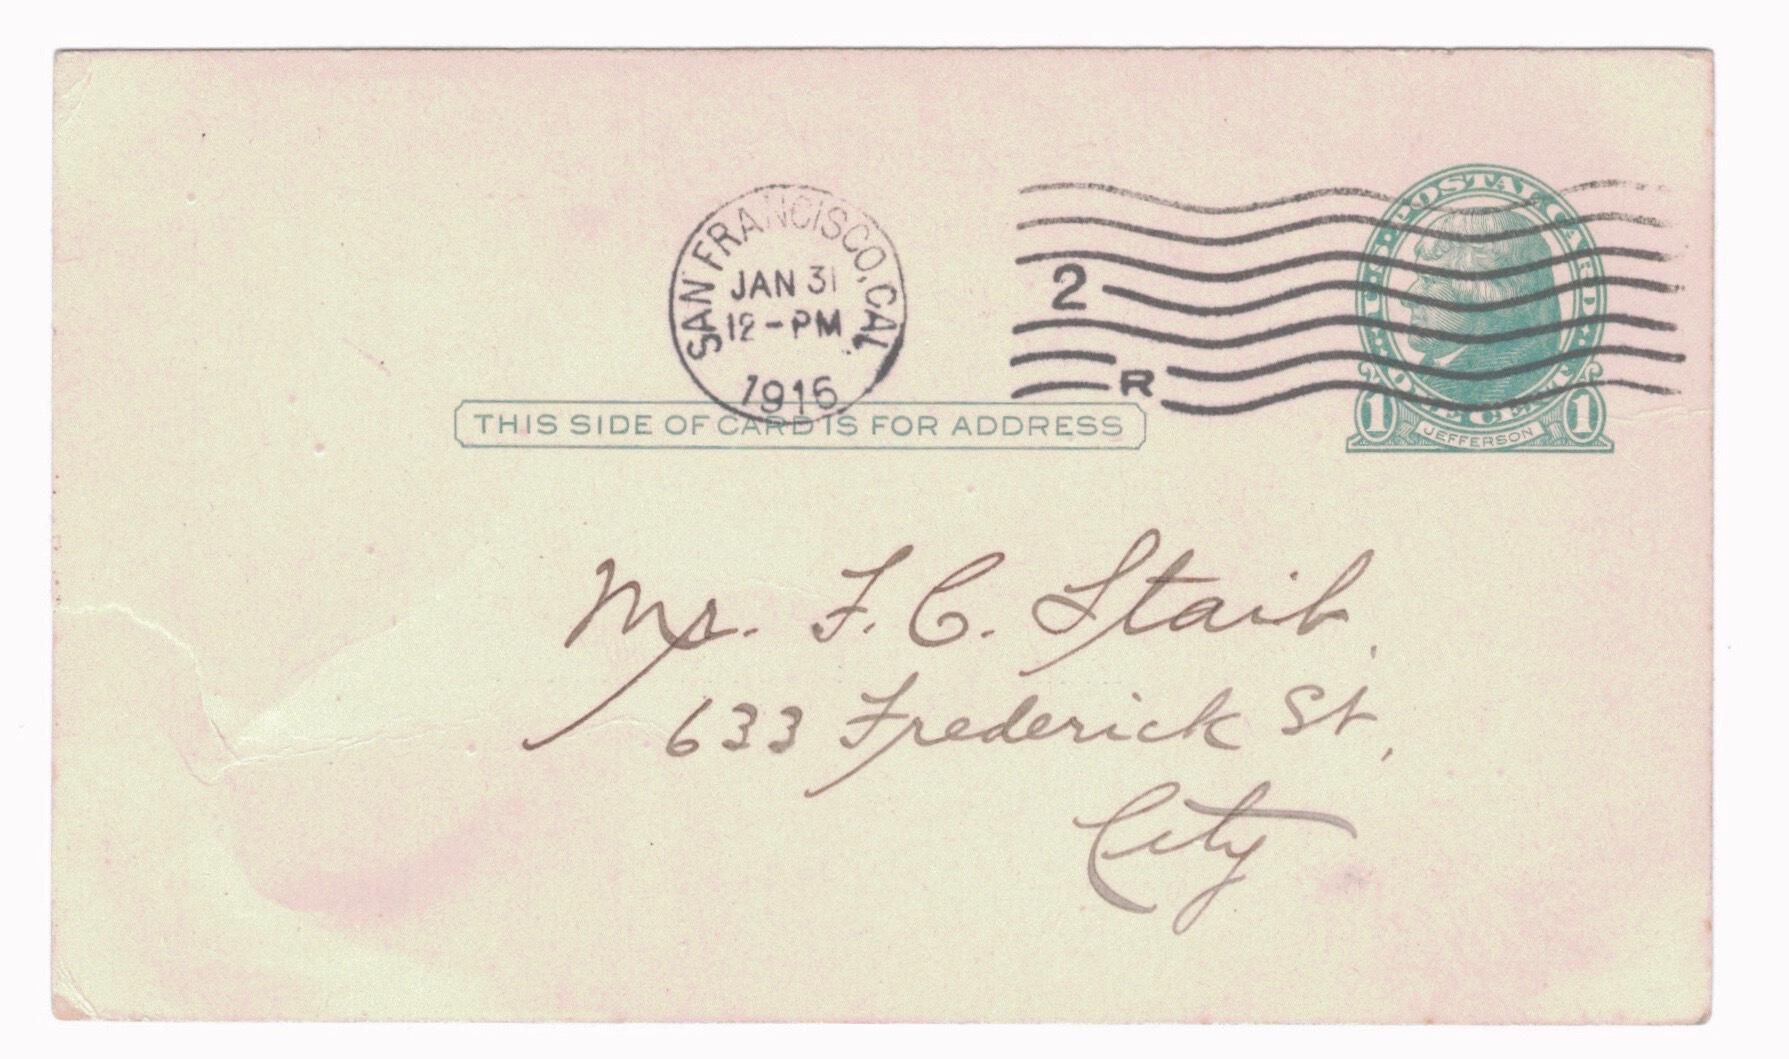 SAN FRANCISCO, CAL.
JAN 31
12-PM
1916
2
R
U.S. POSTAL CARD
ONE CENT
1 JEFFERSON 1
THIS SIDE OF CARD IS FOR ADDRESS
Mr. F. C. Staib,
633 Frederick St,
City